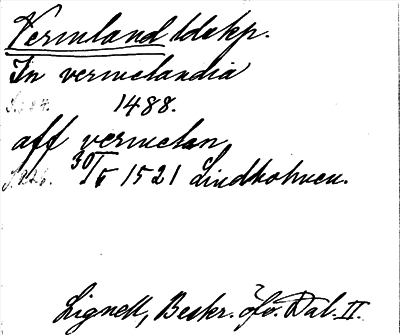 Vermland ldskp.
In vermelandia
1488.
aff vermelan
30/5 1521 Lindhohuen.
Lignell, Beskr. öfv. Dal. II.